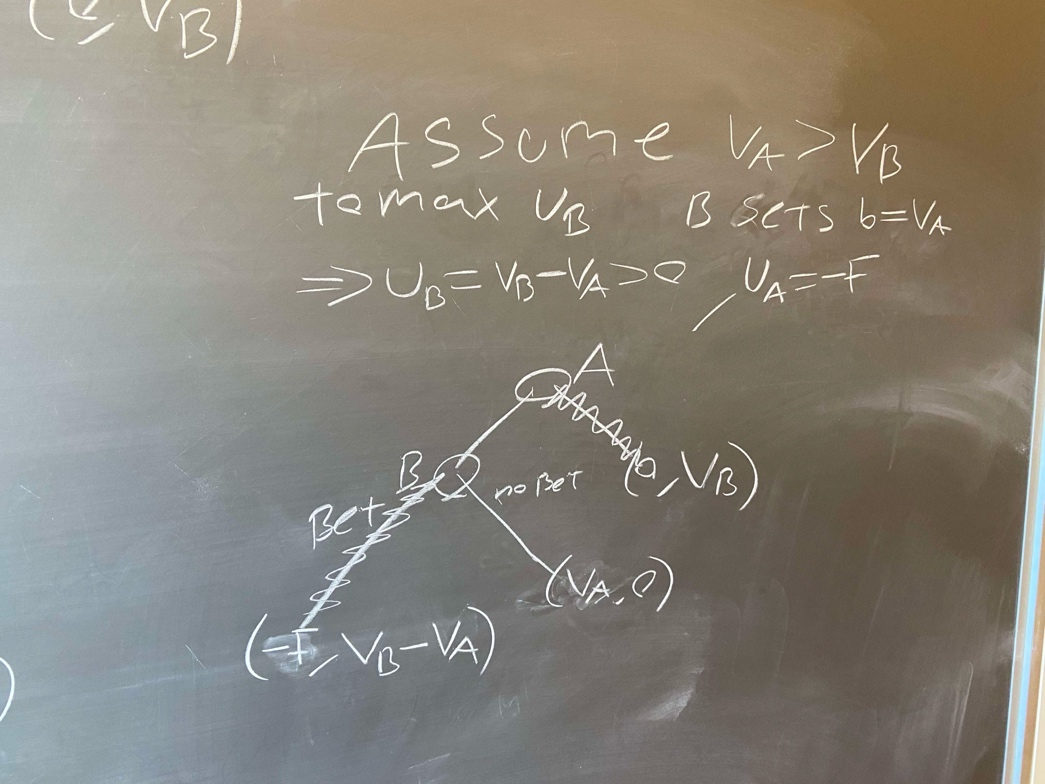 V_B)
Assume V_A > V_B
to max U_B B sets b = V_A
⇒ U_B = V_B - V_A > 0, U_A = -F
A
B
no Bet
(0, V_B)
Bet
(V_A, 0)
(-F, V_B - V_A)